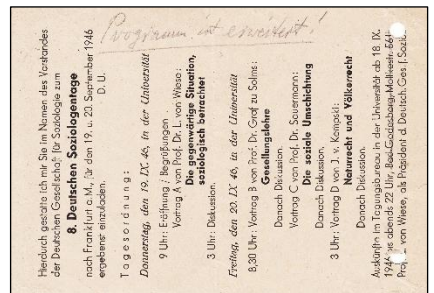 Programm ist erweitert!
Hierdurch gestatte ich mir Sie im Namen des Vorstandes
der Deutschen Gesellschaft für Soziologie zum
8. Deutschen Soziologentage
nach Frankfurt a. M., für den 19. u. 20. September 1946
ergebenst einzuladen. D. U.
Tagesordnung:
Donnerstag, den 19. IX. 46, in der Universität
9 Uhr: Eröffnung / Begrüßungen.
Vortrag A von Prof. Dr. L. von Wiese:
Die gegenwärtige Situation,
soziologisch betrachtet
3 Uhr: Diskussion.
Freitag, den 20. IX 46, in der Universität
8,30 Uhr: Vortrag B von Prof. Dr. Graf zu Solms:
Gesellungslehre
Danach Discussion.
Vortrag C von Prof. Dr. Sauermann:
Die soziale Umschichtung
Danach Discussion.
3 Uhr: Vortrag D von J. v. Kempski:
Naturrecht und Völkerrecht
Danach Discussion.
Auskünfte im Tagungsbureau in der Universität ab 18. IX.
1946 bis abends 22 Uhr, Bad Godesberg,
Prof. L. von Wiese, als Präsident d. Deutsch. Ges. f. Soziol.